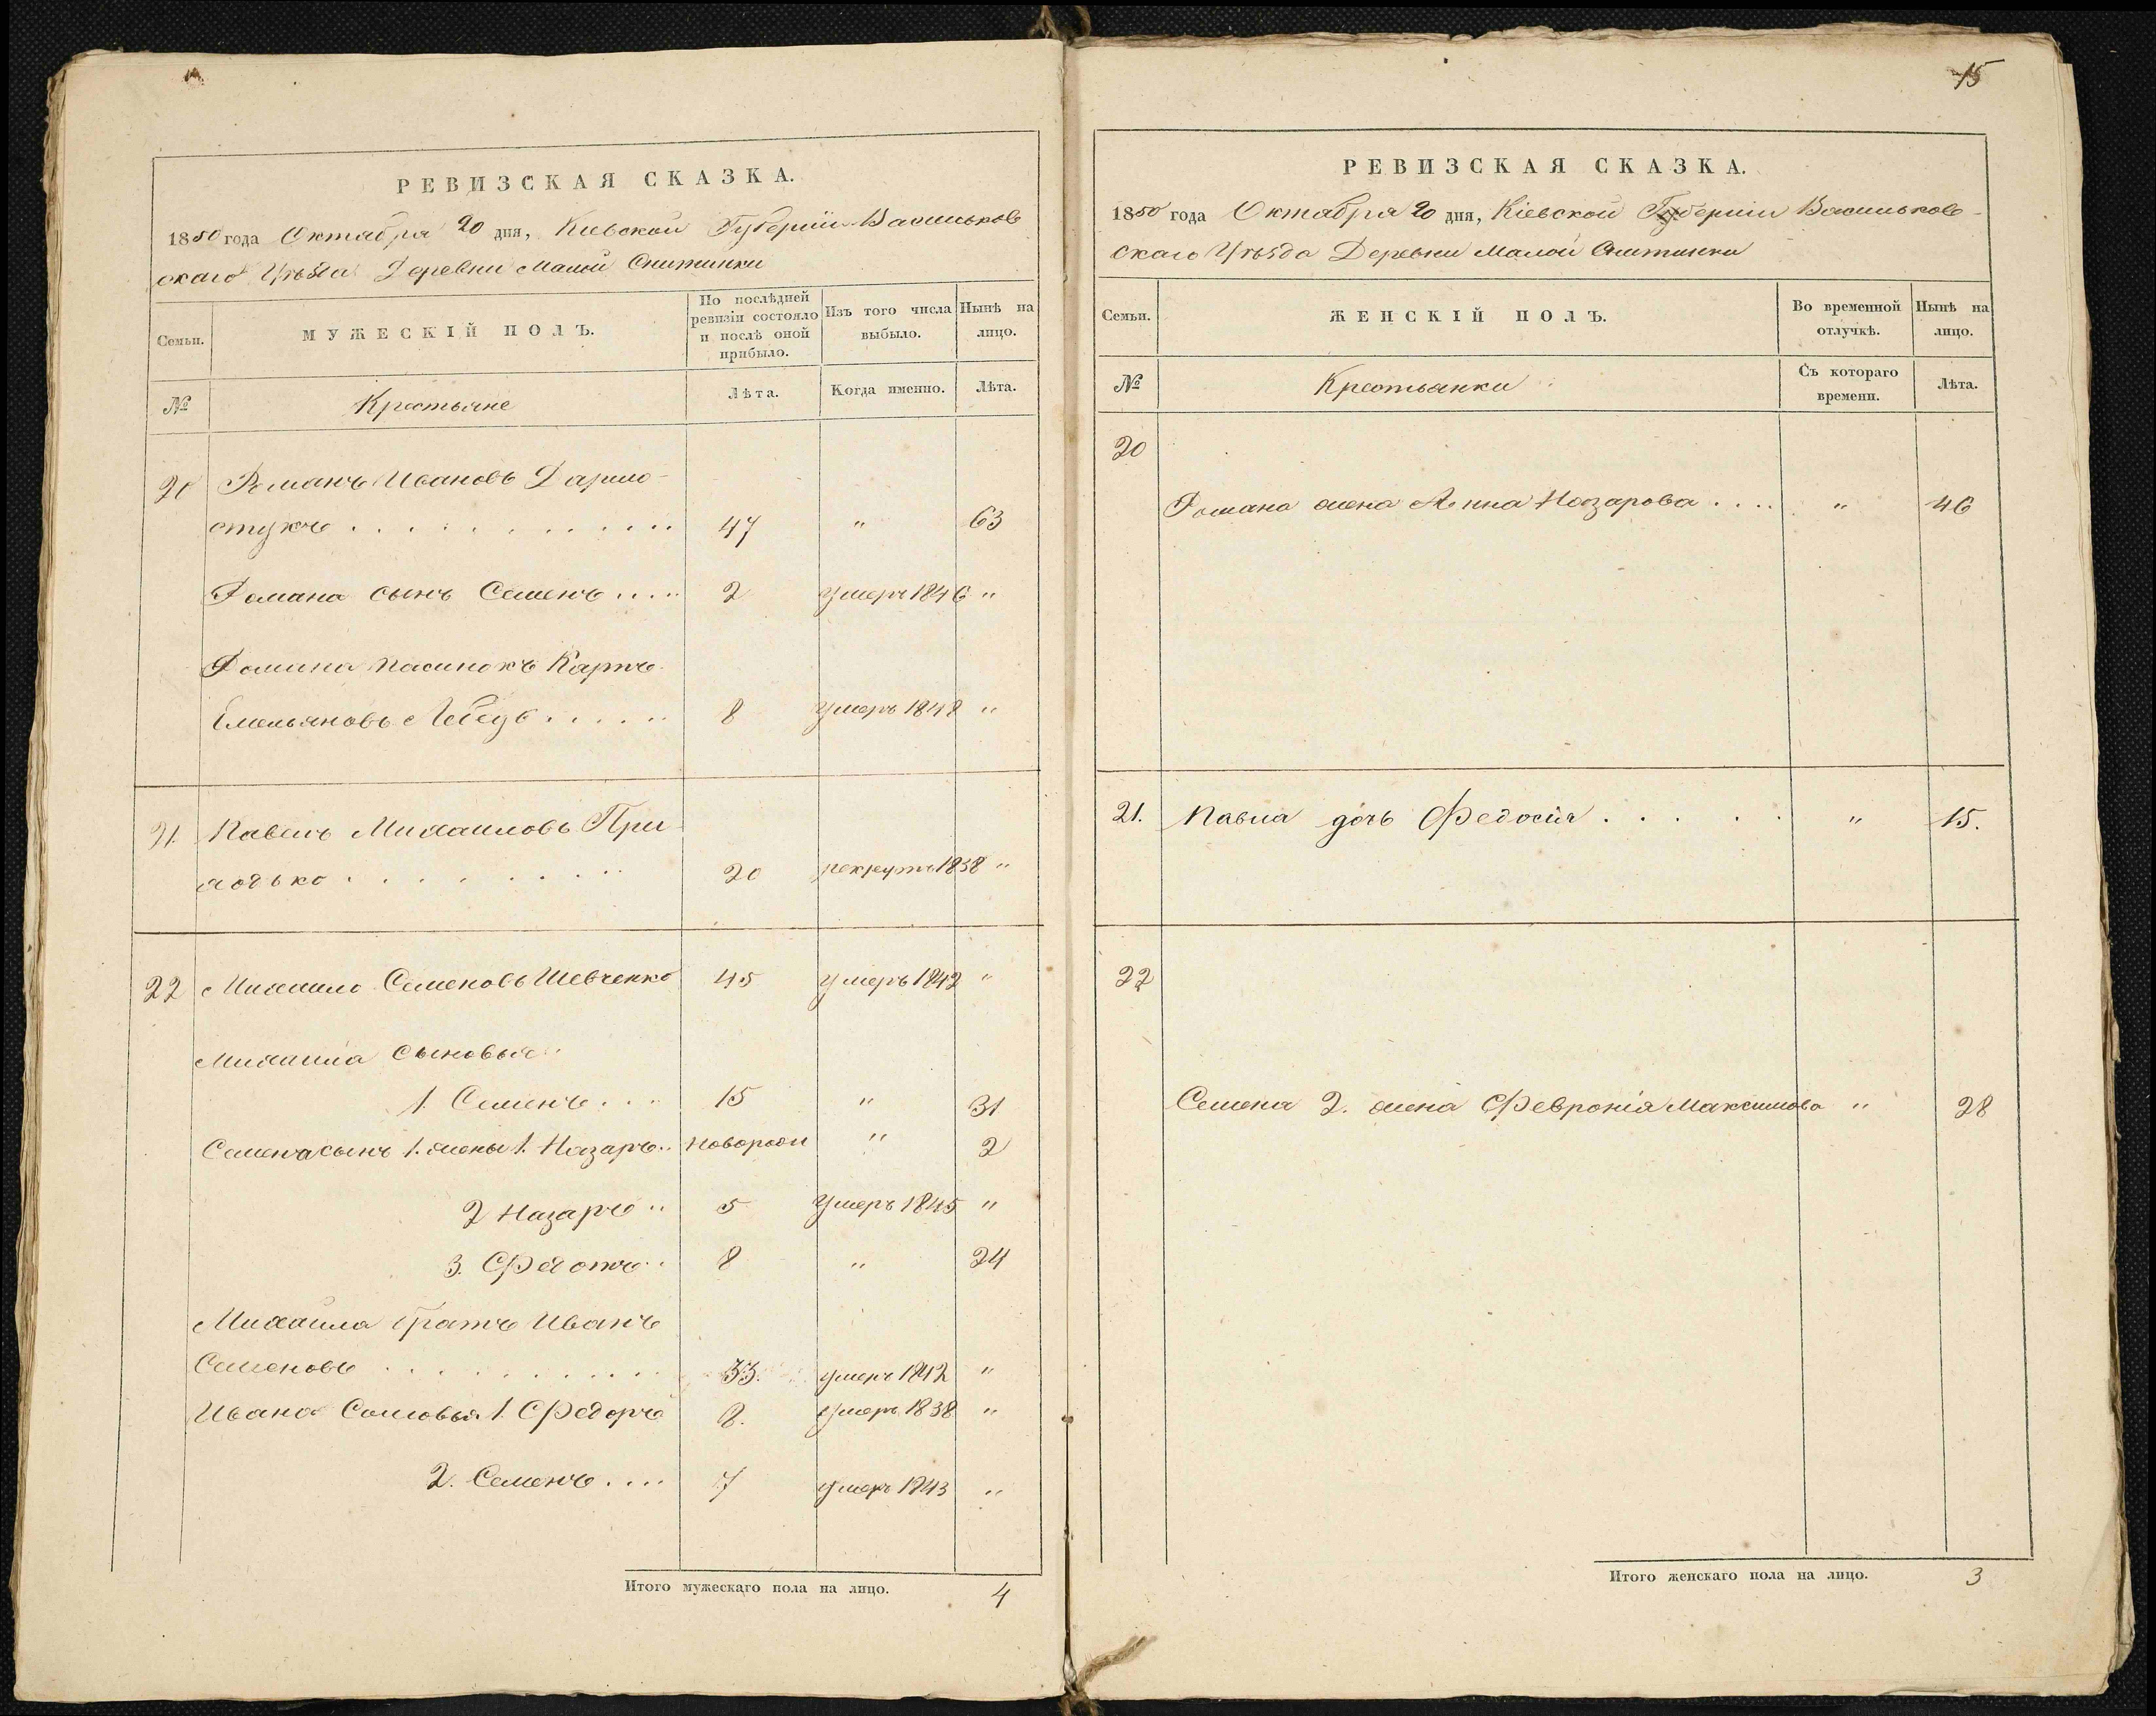 РЕВИЗСКАЯ СКАЗКА.
1850 года Октября 20 дня, Киевской Губернии Васильков
скаго Уѣзда Деревни Малой Снитинки
Семьи.
МУЖЕСКІЙ ПОЛЪ.
По послѣдней ревизіи состояло и послѣ оной прибыло.
Изъ того числа выбыло.
Нынѣ на лицо.
№
Крестьяне
Лѣта.
Когда именно.
Лѣта.
20 Романъ Ивановъ
47 " 63
Романа сынъ Семенъ 2 умеръ 1846 "
Романа пасинокъ Карпъ
Емельяновъ 8 умеръ 1848 "
21. Павелъ Михаиловъ При
ходько 20 рекрутъ 1838 "
22 Михаило Семеновъ Шевченко 45 умеръ 1842 "
Михаила Сыновья
1. Семенъ 15 " 31
Семена сынъ 1. жены 1. Назаръ новорожд " 2
2 Назаръ 5 умеръ 1845 "
3. Федотъ 8 " 24
Михаила братъ Иванъ
Семеновъ 33. умеръ 1842 "
Ивана Сыновья 1. Федоръ 8. умеръ 1838 "
2. Семенъ 7 умеръ 1843 "
Итого мужескаго пола на лицо. 4
15
РЕВИЗСКАЯ СКАЗКА.
1850 года Октября 20 дня, Кіевской Губерніи Васильков-
скаго Уѣзда Деревни Малой Снитинки
Семьи.
ЖЕНСКІЙ ПОЛЪ.
Во временной отлучкѣ.
Нынѣ на лицо.
№
Крестьянки
Съ котораго времени.
Лѣта.
20
Романа жена Анна Назарова .... " 46
21. Павла дочь Федосія . . . . . " 15.
22
Семена 2. жена Февронія Максимова " 28
Итого женскаго пола на лицо. 3